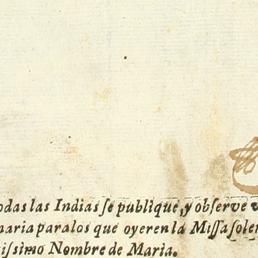 odas las Indias se publique, y observe v
naria paralos que oyeren la Missa solem
issimo Nombre de Maria.